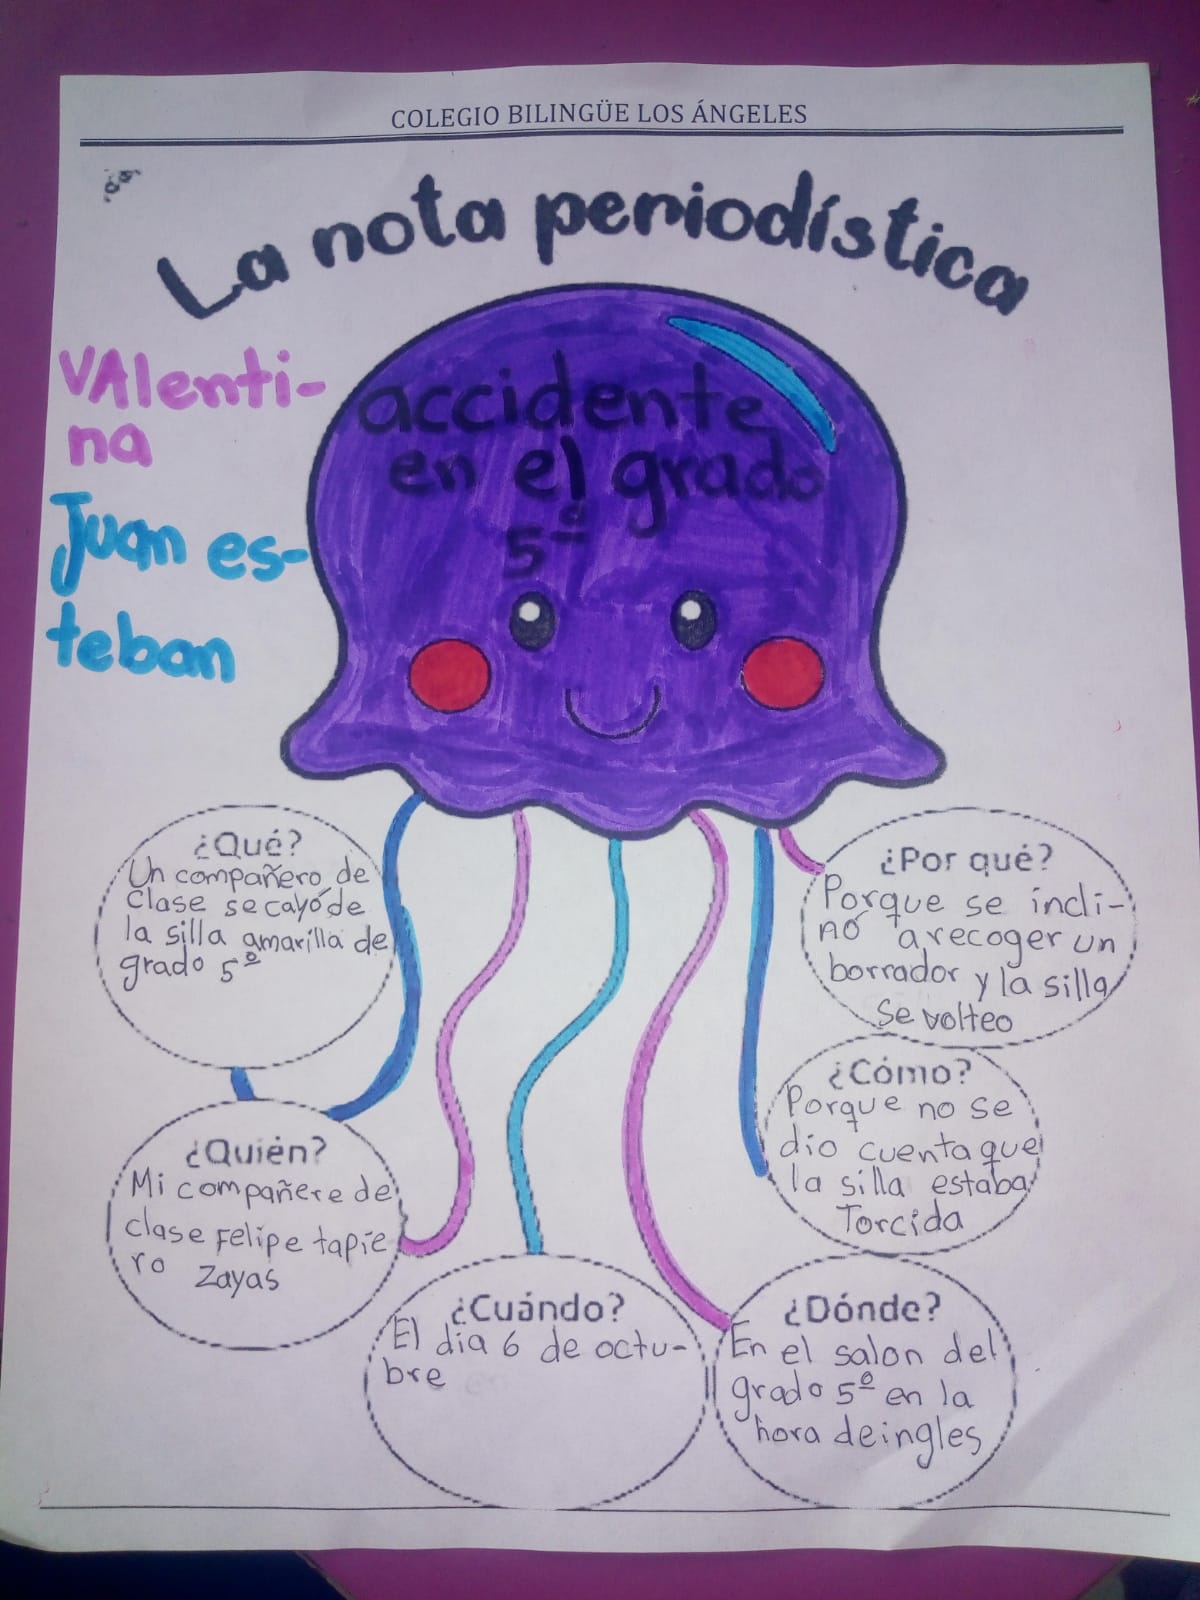 COLEGIO BILINGÜE LOS ÁNGELES
La nota periodística
VAlenti-
na
Juan es-
teban
accidente
en el grado
5º
¿Qué?
Un compañero de
clase se cayó de
la silla amarilla de
grado 5º
¿Quién?
Mi compañere de
clase Felipe tapie
ro Zayas
¿Cuándo?
El dia 6 de octu-
bre
¿Dónde?
En el salon del
grado 5º en la
hora deingles
¿Cómo?
Porque no se
dio cuenta que
la silla estaba
Torcida
¿Por qué?
Porque se incli-
nó a recoger un
borrador y la silla
se volteo